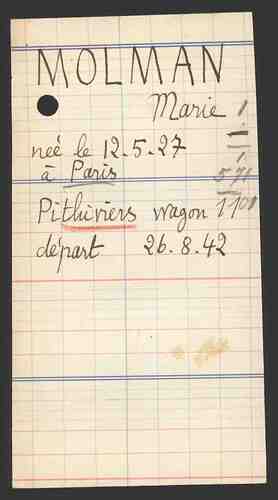 MOLMAN
Marie 1
neé le 12.5.27
à Paris
Pithiviers wagon 11
départ 26.8.42